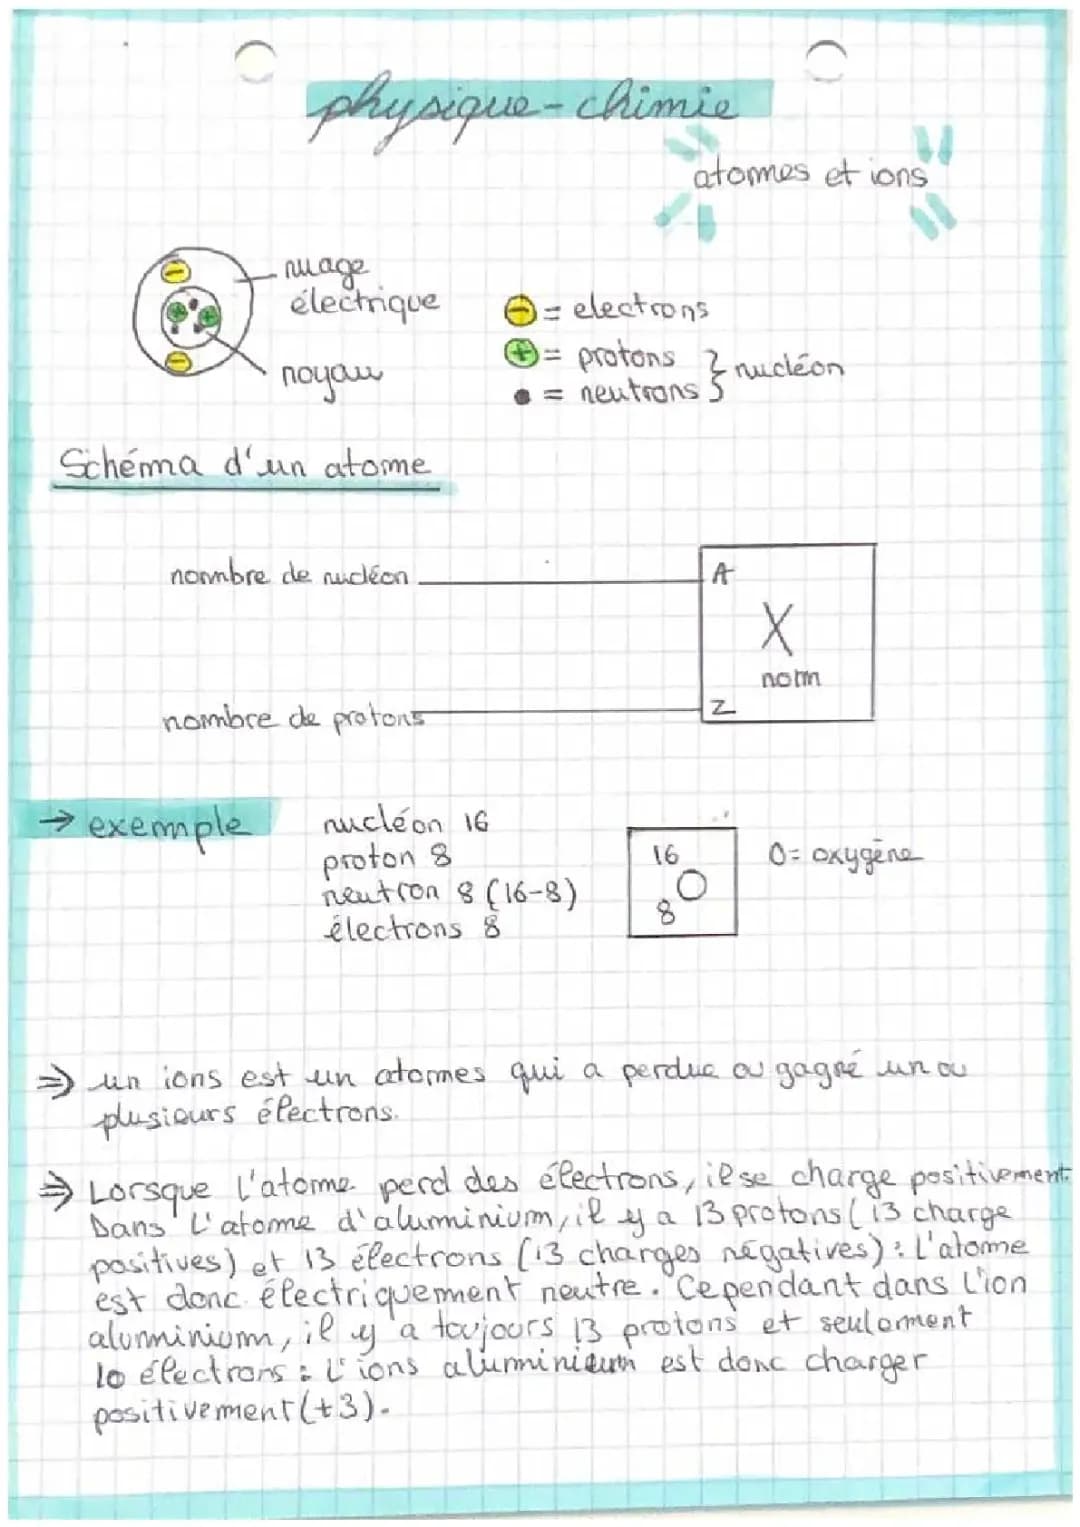 physique-chimie
atomes et ions
nuage
électrique
noyau
- = electrons
+ = protons } nucléon
= neutrons
Schéma d'un atome
nombre de nucléon
A
X
nom
nombre de protons
Z
→ exemple
nucléon 16
proton 8
neutron 8 (16-8)
électrons 8
16
O
8
O = oxygène
⇒ un ions est un atomes qui a perdue ou gagné un ou
plusieurs électrons.
⇒ Lorsque l'atome perd des électrons, il se charge positivement.
Dans l'atome d'aluminium, il y a 13 protons (13 charge
positives) et 13 électrons (13 charges négatives) : L'atome
est donc électriquement neutre. Cependant dans l'ion
aluminium, il y a toujours 13 protons et seulement
10 électrons : L'ions aluminium est donc charger
positivement (+3).